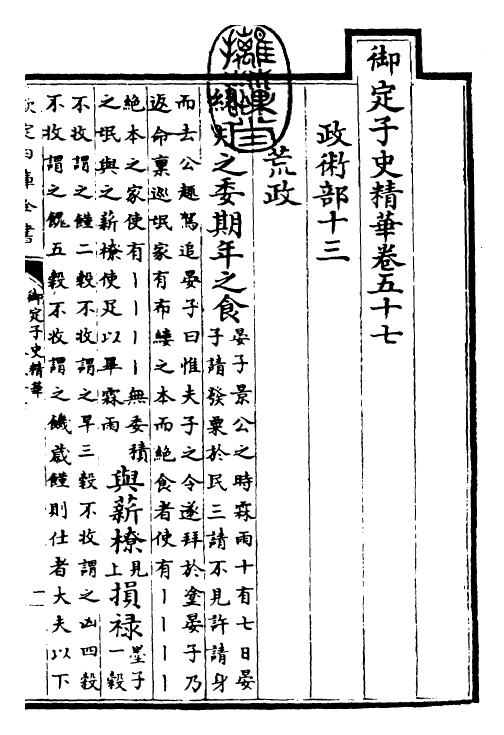 御定子史精華卷五十七
政術部十三
荒政
之委期年之食
晏子景公之時霖雨十有七日晏
子請發粟於民三請不見許請身
而去公趨駕追晏子曰惟夫子之令遂拜於塗晏子乃
返命稟巡氓家有布縷之本而絶食者使有丨丨丨丨
絶本之家使有丨丨丨丨無委積
之氓與之薪橑使足以畢霖雨
與薪橑
見
上
損禄
墨子
一穀
不收謂之饉二穀不收謂之旱三穀不收謂之凶四穀
不收謂之餽五穀不收謂之饑歲饉則仕者大夫以下
欽定四庫全書
御定子史精華